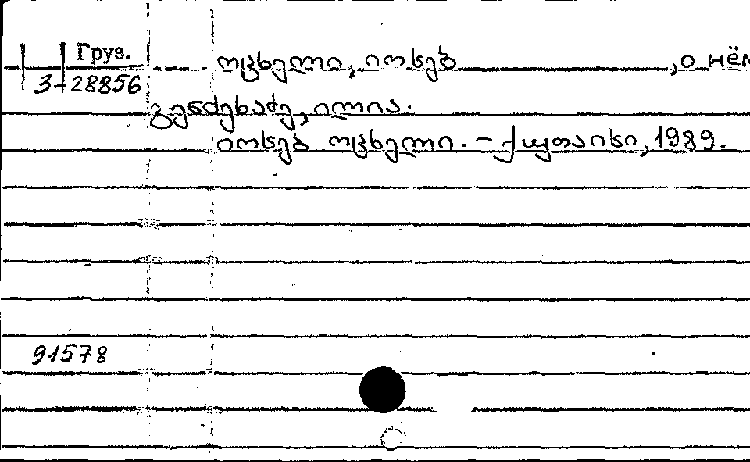 Груз.
ოცხელი, იოსებ, о нём
3-28856
გენძეხაძე, ილია.
იოსებ ოცხელი. – ქუთაისი, 1989.
91578